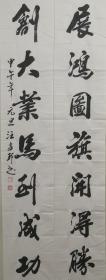 展鴻圖旗開得勝
創大業馬到成功
甲午年元旦